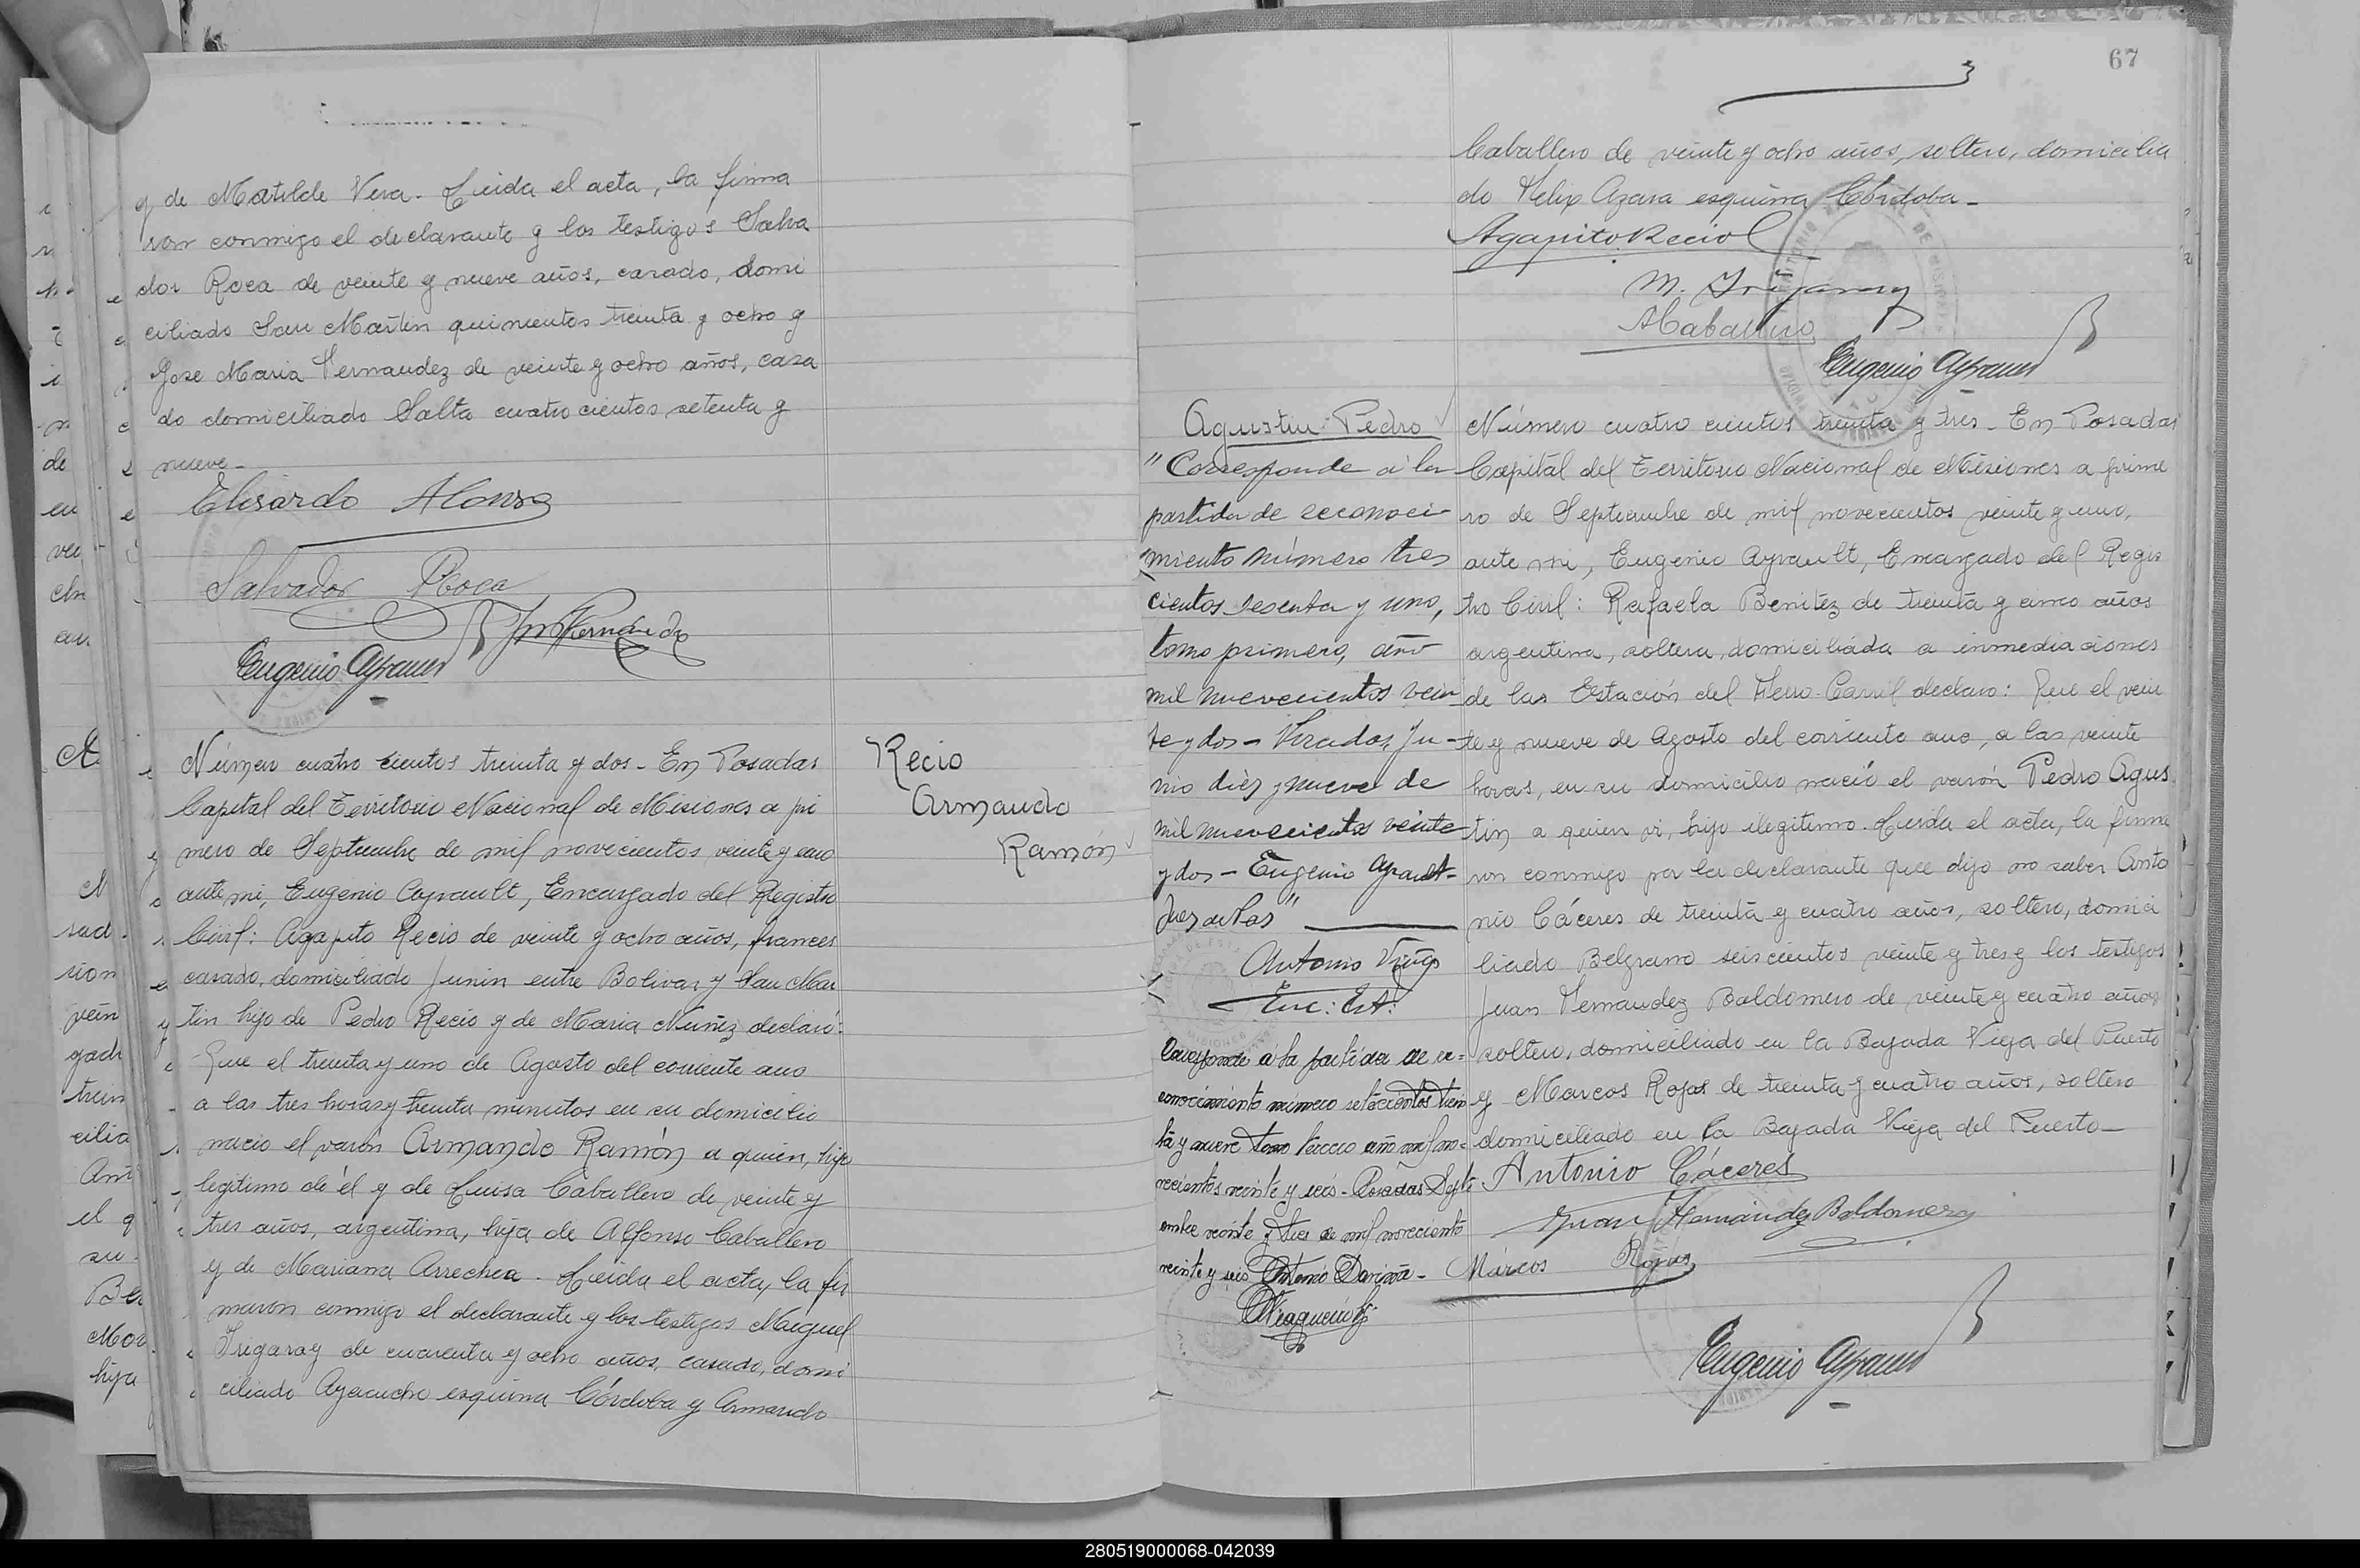 y de Matilde Vera. Leida el acta, la firma
ron conmigo el declarante y los testigos Salva
dor Roca de veinte y nueve años, casado, domi
ciliado San Martin quinientos treinta y ocho y
Jose Maria Fernandez de veinte y ocho años, casa
do domiciliado Salta cuatro cientos setenta y
nueve-
Elisardo Alonso
Salvador Roca
JM Fernández
Eugenio Ayrault
Número cuatro cientos treinta y dos- En Posadas
Capital del Territorio Nacional de Misiones a pri
mero de Septiembre de mil novecientos veinte y uno
ante mi, Eugenio Ayrault, Encargado del Registro
Civil: Agapito Recio de veinte y ocho años, frances
casado, domiciliado Junin entre Bolivar y San Mar
tin hijo de Pedro Recio y de Maria Nuñez declaró:
Que el treinta y uno de Agosto del corriente ano
a las tres horas y treinta minutos en su domicilio
nacio el varon Armando Ramón a quien, hijo
legitimo de él y de Luisa Caballero de veinte y
tres años, argentina, hija de Alfonso Caballero
y de Mariana Arrechea. Leida el acta, la fir
maron conmigo el declarante y los testigos Miguel
Irigaray de cuarenta y ocho años, casado, domi
ciliado Ayacucho esquina Córdoba y Armando
Recio
Armando
Ramón
67
Caballero de veinte y ocho años, soltero, domicilia
do Felix Azara esquina Córdoba-
Agapito Recio
M. Irigaray
ACaballero
Eugenio Ayrault
Agustin Pedro
"Corresponde a la
partida de reconoci
miento número tres
cientos sesenta y uno,
tomo primero, año
mil nuevecientos vein
te y dos- Posadas, Ju-
nio diez y nueve de
mil nuevecientos veinte
y dos- Eugenio Ayrault-
Antonio
Enc: Est:
Corresponde a la partida de re=
conocimiento número setecientos trein
ta y nueve tomo tercero año mil no=
vecientos veinte y seis- Posadas Septi
embre veinte y tres de mil novecientos
veinte y seis
Número cuatro cientos treinta y tres- En Posadas
Capital del Territorio Nacional de Misiones a prime
ro de Septiembre de mil novecientos veinte y uno,
ante mi, Eugenio Ayrault, Encargado del Regis
tro Civil: Rafaela Benitez de treinta y cinco años
argentina, soltera, domiciliada a inmediaciones
de las Estación del Ferro-Carril declaro: Que el vein
te y nueve de Agosto del corriente ano, a las veinte
horas, en su domicilio nació el varón Pedro Agus
tin a quien vi, hijo ilegitimo. Leida el acta, la firma
ron conmigo por la declarante que dijo no saber Anto
nio Cáceres de treinta y cuatro años, soltero, domici
liado Belgrano seiscientos veinte y tres y los testigos
Juan Fernandez Baldomero de veinte y cuatro años
soltero, domiciliado en la Bajada Vieja del Puerto
y Marcos Rojas de treinta y cuatro años, soltero
domiciliado en la Bajada Vieja del Puerto-
Antonio Cáceres
Juan Hernández Baldomero
Márcos Rojas
Eugenio Ayrault
280519000068-042039